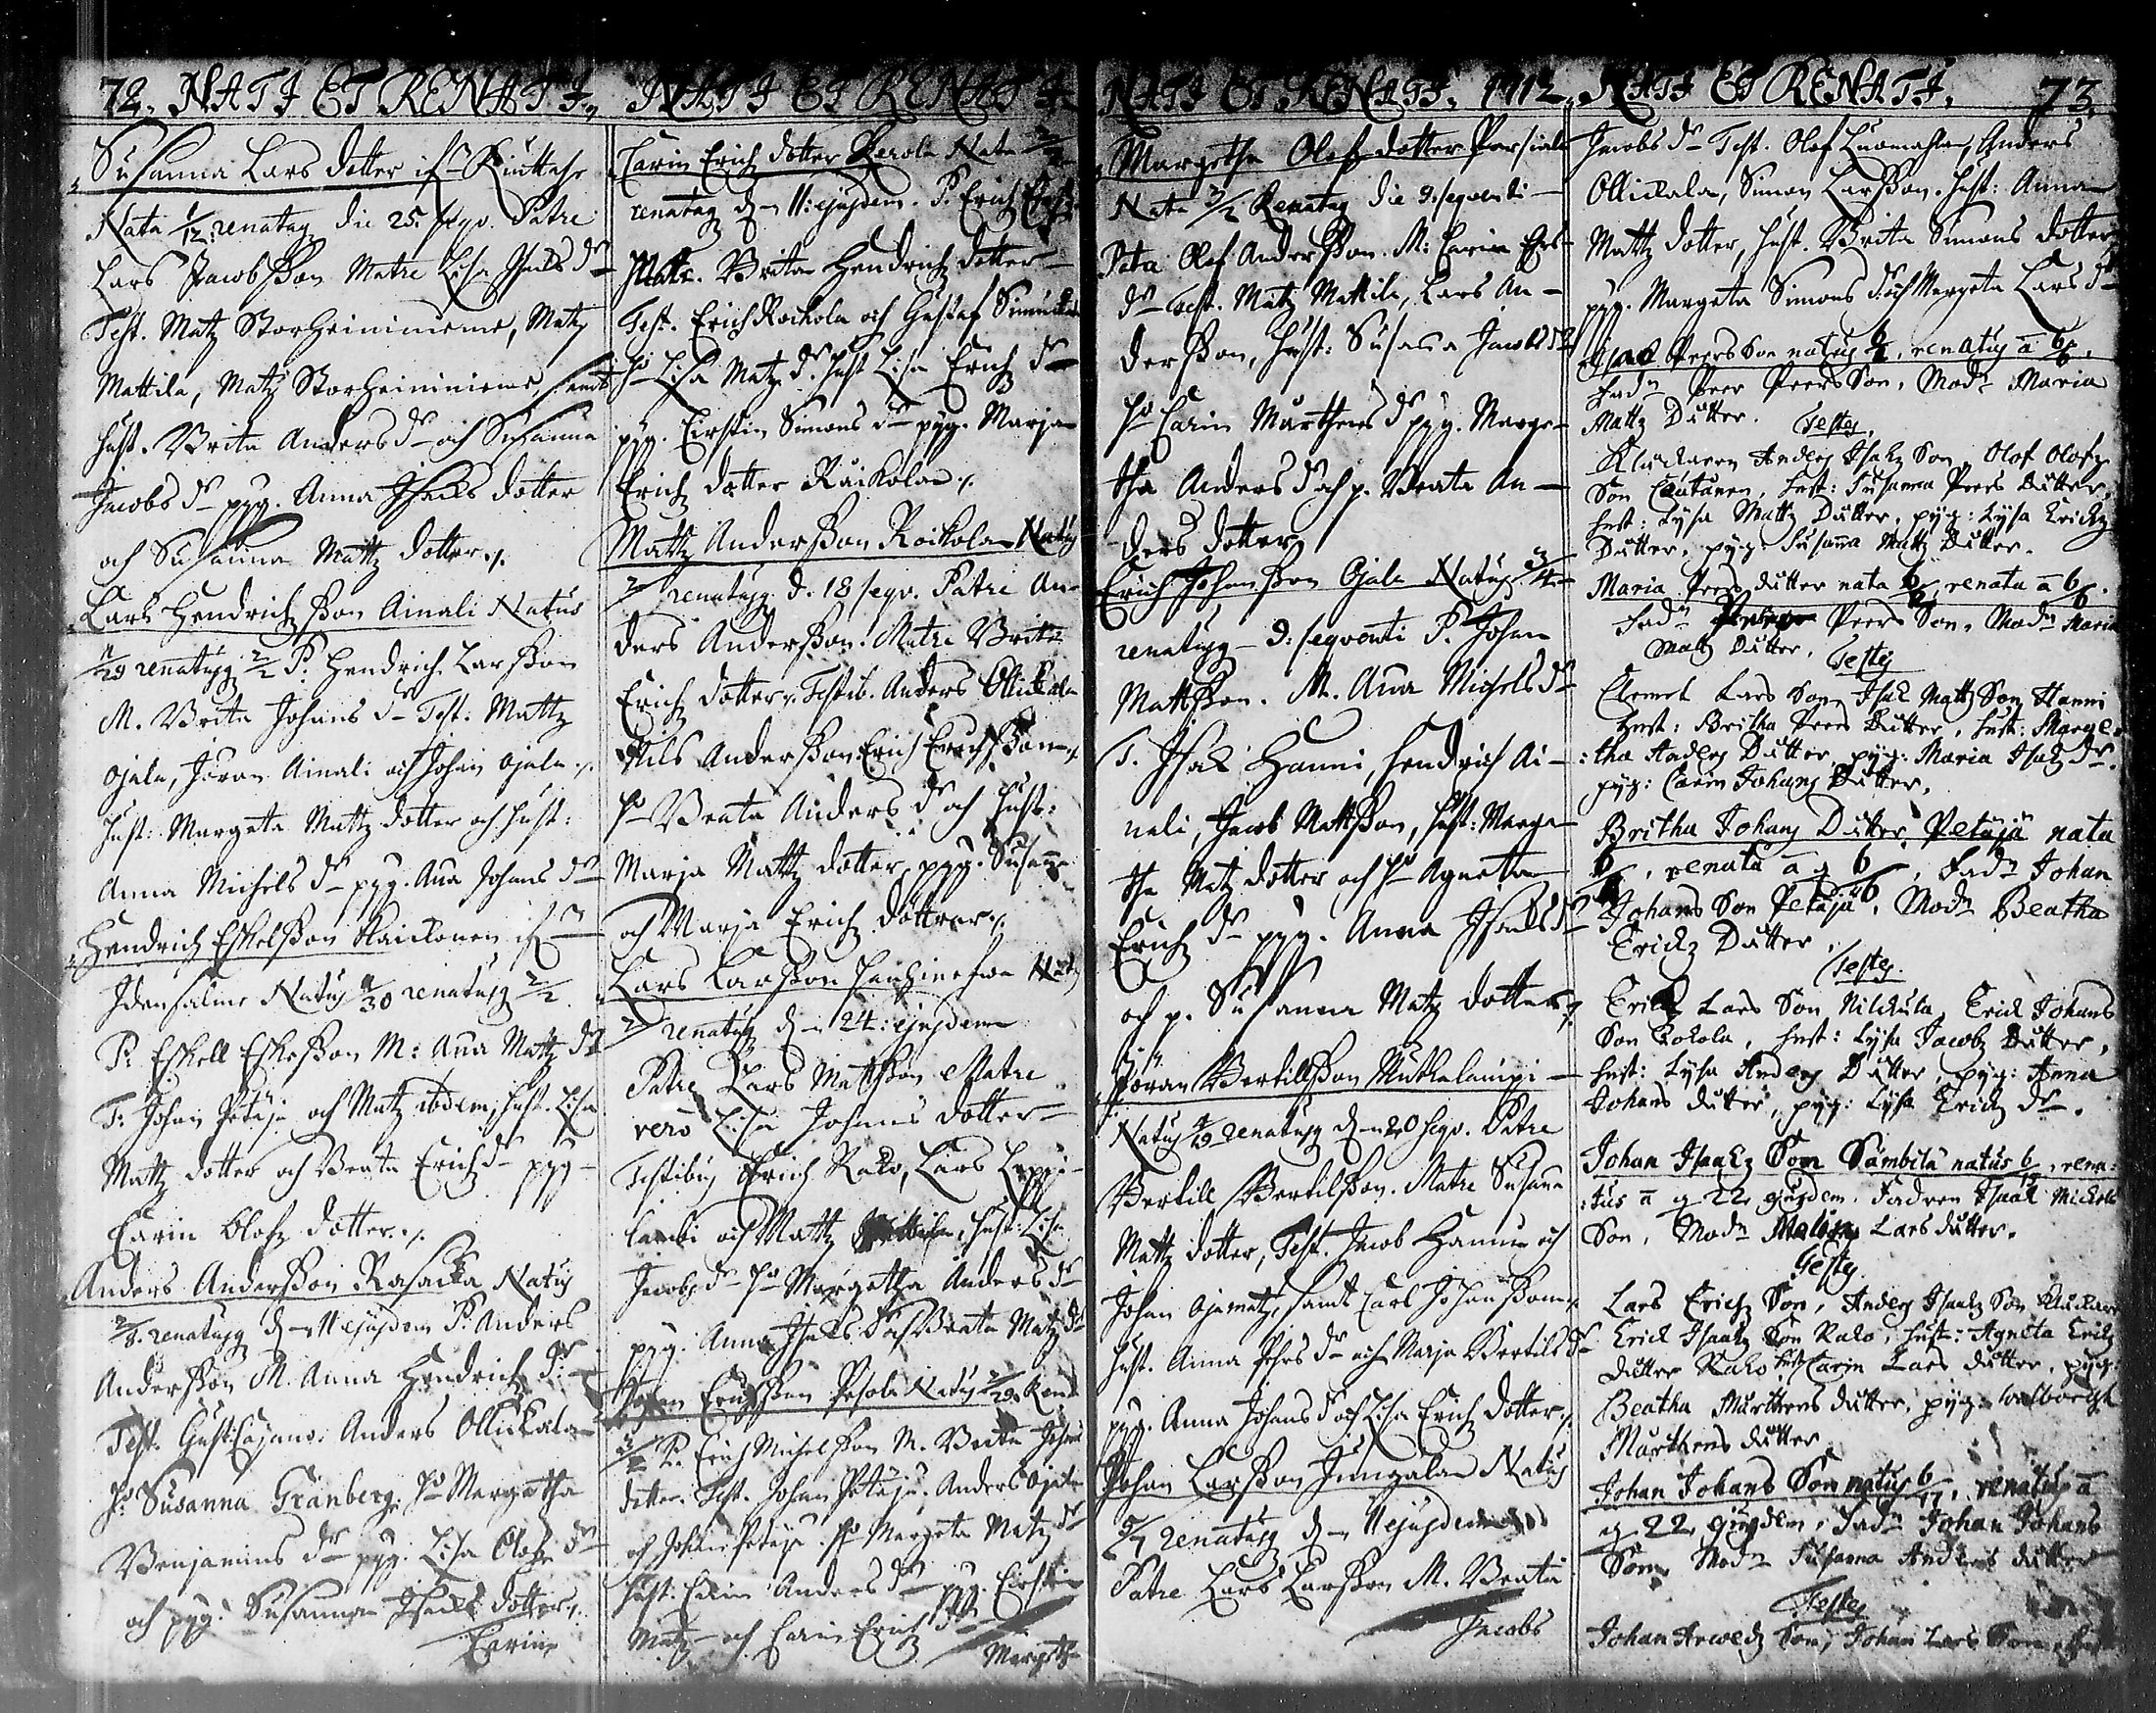 72. NATI ET RENATI.
Susanna Lars dotter if Kiuttahr
Nata 1/12 renataq die 25. seqv. Patre
Lars Jacobsson Matre Lisa Isacs dr
Test. Matz Storheinimeme, Matz
Mattila, Matz Storheinimeme, samt
hust. Brita Anders dr och Susanna
Jacobs dr pyg. Anna Isacs dotter
och Susanna Mattz dotter
Lars Hendrichsson Ainali Natus
11/29 renatusq 2/2 P. Hendrich Larsson
M. Brita Johans dr Test: Mattz
Ojala, Joran Ainali och Johan Ojala
hust: Margeta Mattz dotter och hust:
Anna Michels dr pyg. Ana Johans dr
Hendrich Eskelsson Kaickonen if
Idensalmi Natus 11/30 renatusq 2/2
P. Eskell Eskelsson M: Ana Mattz dr
T: Johan Petäja och Matz ibdem, hust. Lisa
Mattz dotter och Beata Erichz dr pyg
Carin Olofz dotter
Anders Andersson Rasacka Natus
2/8 renatusq d. 11 ejusdem P. Anders
Andersson M. Anna Hendrichz dr
Test. Gust: Cajanus Anders Ollickala
h. Susanna Granberg, h. Margetha
Benjamins dr pyg. Lisa Olofz dr
och pyg. Susanna Isacs dotter
Carin
NATI ET RENATI
Carin Erichz dotter Rerola Nata 2/2
renataq d. 11: ejusdem. P. Erich
Matre. Brita Hendrichz dotter
Test. Erich Rockola och Gustaf
h. Lisa Matz dr. hust Lisa Erichz dr
pyg. Cirstin Simons dr pyg. Marja
Erichz dotter Räikola
Mattz Andersson Rockola Natus
2/ renatusq d. 18 seqv. Patre An-
ders Andersson. Matre Brita
Erichz dotter. Testib. Anders Ollickala
Nils Andersson Erich Erichsson
h. Beata Anders dr och hust:
Marja Mattz dotter, pyg. Susanna
och Marja Erichz dottrar
Lars Larsson Natus
2/ renatusq d. 24. ejusdem
Patre Lars Mattsson Matre
vero Lisa Johans dotter
Testibus Erich Rako, Lars Leppi-
lambi och Mattz Mattila, hust: Lisa
Jacobz dr h. Margetha Anders dr
pyg. Anna Isacs dr och Beata Matz dr
Johan Erichsson Pesola Natus 2/29 Rena
3/2 P. Erich Michelsson M. Brita Johans
dotter. Test. Johan Petäja. Anders Ojala
och Johan Petäja. h. Margeta Matz dr
hust: Carin Anders dr pyg. Cirstin
Matz och Carin Erichz dr
Margetha
NATI ET RENATI. 1712.
Margetha Olofs dotter Parsiala
Nata 3/2 Renataq die 9. sequenti
Patre Olof Andersson. M: Carin
dr Test. Matz Mattila, Lars An-
dersson, hust: Susanna Jacobs dr
h. Carin Mårthens dr pyg. Marge-
tha Anders dr och p. Beata An-
ders dotter
Erich Johansson Ojala Natus 3/4
renatusq 9: sequenti P. Johan
Mattsson. M. Ana Michels dr
T. Isac Hanni, Hendrich Ai-
nali, Jacob Mattsson, hust: Marga-
tha Matz dotter och h. Agneta
Erichz dr pyg. Anna Isacs dr
och p. Susanna Matz dotter
Joran Bertillsson Mutkalampi
Natus 4/19 renatusq d. 20 seqv. Patre
Bertill Bertilsson. Matre Susanna
Mattz dotter, Test. Jacob Hannu och
Johan Ojamatz, samt Carl Johansson
hust. Anna Pehrs dr och Marja Bertils dr
pyg. Anna Johans dr och Lisa Erichz dotter
Johan Larsson Jungala Natus
5/7 renatusq d. 11 ejusdem
Patre Lars Larsson M. Beata
Jacobs
NATI ET RENATI. 73.
Jacobs dr Test. Olof Luomahla, Anders
Ollickala, Simon Larsson. hust: Anna
Mattz dotter, hust. Brita Simons dotter
pyg. Margeta Simons dr och Margeta Lars dr
Isaac Peersson natus 6/, renatus a 6/6.
Fadn Peer Peers Son, Modn Maria
Mattz Dutter. Testes.
Kluckaren Anders Isakz Son, Olof Olofz
Son Cautanen, hust: Susanna Peers Dutter,
hust: Lysa Mattz Dutter, pyg: Lysa Erickz
Dutter, pyg: Susana Mattz Dutter.
Maria Peers dutter nata 6/, renata a 6/6.
Fadn Peers Son, Modn Maria
Mattz Dutter. Testes
Clemet Lars Son, Isak Mattz Son Hanni
hust: Britha Peers Dutter, hust: Marge-
:tha Anders Dutter, pyg: Maria Isakz dr.
pyg: Carin Johans Dutter.
Britha Johans Dutter Petäjä nata
6/, renata a q 6/, Fadn Johan
Johans Son Petäjä, Modn Beatha
Erickz Dutter.
Testes.
Erick Lars Son Nickula, Erick Johans
Son Kokola, hust: Lysa Jacobz Dutter,
hust: Lysa Anders Dutter, pyg: Anna
Johans dutter, pyg: Lysa Erickz dr.
Johan Isaakz Son Sämbilä natus 6/, rena-
:tus a q 22 ejusdem. Fadren Isaak Mickels
Son, Modn Malin Lars dutter.
Testes
Lars Erichz Son, Anders Isaakz Son Kluckare
Erick Isaakz Son Rako, hust: Agneta Erickz
dutter Rako hust: Carin Lars dutter, pyg:
Beatha Mårthens dutter, pyg: Walborgh
Mårthens dutter.
Johan Johans Son natus 6/17, renatus a
q 22 ejusdem, Fadn Johan Johans
Son, Modn Susanna Anders dutter
Testes
Johan Arwedz Son, Johan Lars Son,